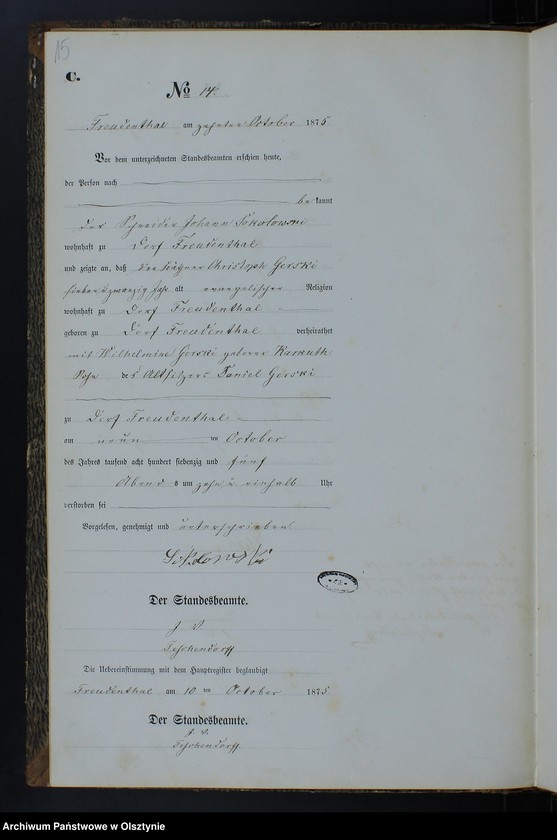 15
C.
No 14.
Freudenthal am zehnten October 1875
Vor dem unterzeichneten Standesbeamten erschien heute,
der Person nach
bekannt
der Schneider Johann Sokolowski
wohnhaft zu Dorf Freudenthal
und zeigte an, daß der Christoph Gerski
sieben u zwanzig Jahr alt evangelischer Religion
wohnhaft zu Dorf Freudenthal
geboren zu Dorf Freudenthal verheirathet
mit Wilhelmine Gerski geborne Karkuth
Sohn des Altsitzers Daniel Gerski
zu Dorf Freudenthal
am neun ten October
des Jahres tausend acht hundert siebenzig und fünf
Abend s um zehn u einhalb Uhr
verstorben sei
Vorgelesen, genehmigt und unterschrieben
Sokolowski
Der Standesbeamte.
J V
Teschendorff
Die Uebereinstimmung mit dem Hauptregister beglaubigt
Freudenthal am 10 ten October 1875
Der Standesbeamte.
J. V.
Teschendorff
Archiwum Państwowe w Olsztynie